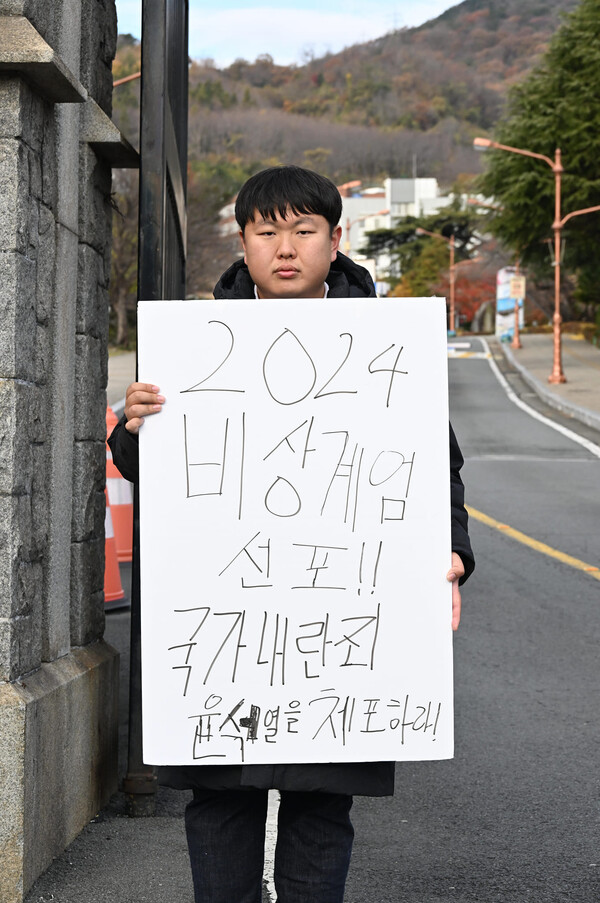 2024
비상계엄
선포!!
국가내란죄
윤석열을 체포하라!